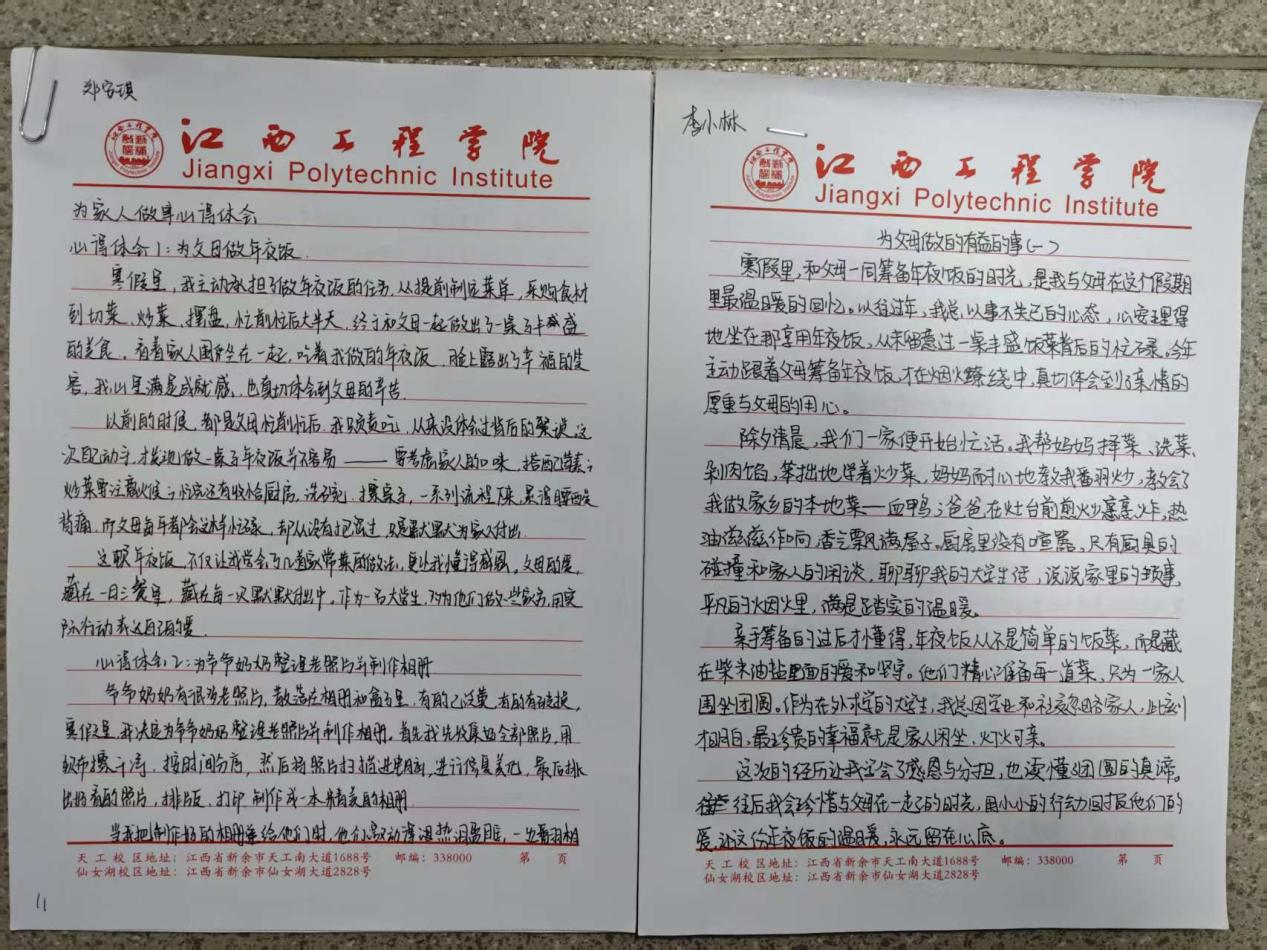 郑家琪
江西工程学院
Jiangxi Polytechnic Institute
为家人做事心得体会
心得体会1:为父母做年夜饭.
寒假里,我主动承担了做年夜饭的任务.从提前制定菜单,采购食材
到切菜、炒菜、摆盘,忙前忙后大半天,终于和父母一起做出了一桌子丰盛
的美食.看着家人围坐在一起,吃着我做的年夜饭,脸上露出了幸福的笑
容,我心里满是成就感,也真切体会到父母的辛苦.
以前的时候,都是父母忙前忙后,我只负责吃,从来没体会过背后的繁琐,这
次自己动手,才发现做一桌子年夜饭并不容易——要考虑家人的口味,搭配荤素;
炒菜要注意火候;忙完还有收拾厨房,洗碗,摆桌子,一系列流程下来,累得腰酸
背痛.而父母每年都会这样忙碌,却从没有抱怨过,只是默默为家人付出.
这顿年夜饭,不仅让我学会了几道家常菜的做法,更让我懂得感恩,父母的爱,
藏在一日三餐里,藏在每一次默默付出中.作为一名大学生,为他们做一些家务,用实
际行动表达自己的爱.
心得体会2:为爷爷奶奶整理老照片并制作相册
爷爷奶奶有很多老照片,散落在相册和盒子里,有的已泛黄,有的有破损,
寒假里,我决定为爷爷奶奶整理老照片并制作相册.首先我先收集好全部照片,用
软布擦干净,按时间分店,然后将照片扫描进电脑,进行修复美化,最后排
出好看的照片,排版,打印制作成一本精美的相册.
当我把制作好的相册拿给他们时,他们激动得热泪盈眶,一边翻相
天工校区地址:江西省新余市天工南大道1688号 邮编:338000 第 页
仙女湖校区地址:江西省新余市仙女湖大道2828号
11
李小林
江西工程学院
Jiangxi Polytechnic Institute
为父母做的有益的事(一)
寒假里,和父母一同筹备年夜饭的时光,是我与父母在这个假期
里最温暖的回忆。以往过年,我总以事不关己的心态,心安理得
地坐在那享用年夜饭,从未留意过一桌丰盛饭菜背后的忙碌。今年
主动跟着父母筹备年夜饭,才在烟火缭绕中,真切体会到了亲情的
厚重与父母的用心。
除夕清晨,我们一家便开始忙活。我帮妈妈择菜、洗菜、
剁肉馅,笨拙地学着炒菜,妈妈耐心地教我番羽炒,教会了
我做家乡的本地菜——血鸭;爸爸在灶台前煎炒蒸炸,热
油滋滋作响,香气飘满屋子。厨房里没有喧嚣,只有厨具的
碰撞和家人的闲谈,聊聊我的大学生活,说说家里的琐事,
平凡的烟火里,满是踏实的温暖。
亲手筹备的过后才懂得,年夜饭从不是简单的饭菜,而是藏
在柴米油盐里面的爱和坚守。他们精心准备每一道菜,只为一家人
围坐团圆。作为在外求学的大学生,我总因学业和社交忽略家人,此刻
才明白,最珍贵的幸福就是家人闲坐,灯火可亲。
这次的经历让我学会了感恩与分担,也读懂了团圆的真谛。
往后我会珍惜与父母在一起的时光,用小小的行动回报他们的
爱,让这份年夜饭的温暖,永远留在心底。
天工校区地址:江西省新余市天工南大道1688号 邮编:338000 第 页
仙女湖校区地址:江西省新余市仙女湖大道2828号